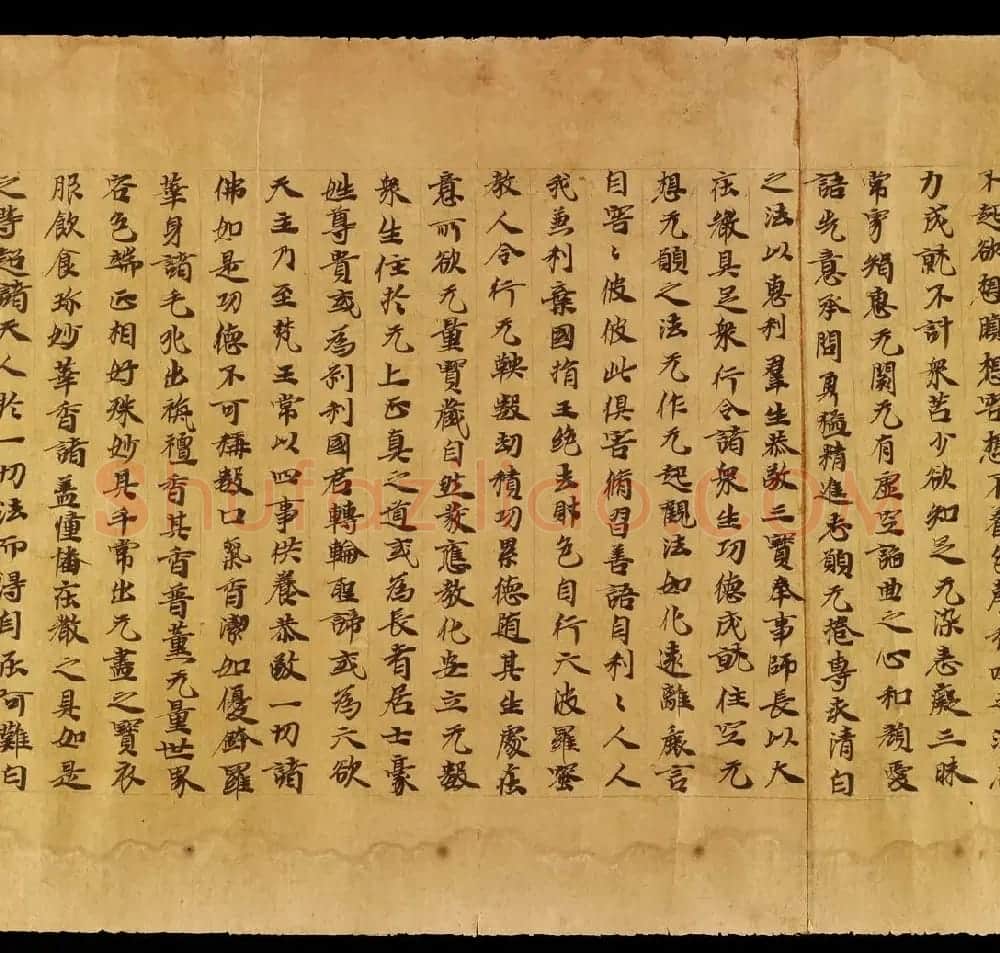 不起欲想瞋想害想不著色聲
力成就不計衆苦少欲知足无染恚癡三昧
常寂智惠无閡无有虛空諂曲之心和顏愛
語先意承問勇猛精進志願无惓專求清白
之法以惠利羣生恭敬三寶奉事師長以大
庄嚴具足衆行令諸衆生功德成就住空无
想无願之法无作无起觀法如化遠離麁言
自害〻彼彼此俱害脩習善語自利〻人人
我兼利棄國捐王絶去財色自行六波羅蜜
教人令行无鞅數劫積功累德隨其生處在
意所欲无量寶藏自然發應教化安立无數
衆生住於无上正真之道或為長者居士豪
姓尊貴或為刹利國君轉輪聖諦或為六欲
天主乃至梵王常以四事供養恭敬一切諸
佛如是功德不可稱數口氣香潔如優鉢羅
華身諸毛孔出栴檀香其香普薰无量世界
容色端正相好殊妙其手常出无盡之寶衣
服飲食珎妙華香諸盖幢幡庄嚴之具如是
之等超諸天人於一切法而得自在阿難白
Shufaziliao.COM